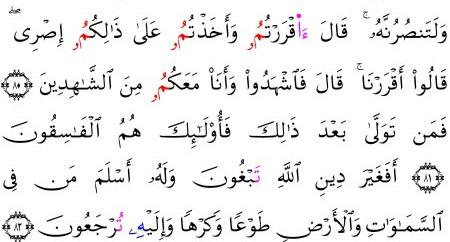 وَلَتَنصُرُنَّهُۥۚ قَالَ ءَا۬قْرَرْتُمُۥ وَأَخَذْتُمُۥ عَلَىٰ ذَٰلِكُمُۥ إِصْرِىۖ
قَالُوٓا۟ أَقْرَرْنَاۚ قَالَ فَٱشْهَدُوا۟ وَأَنَا۠ مَعَكُمُۥ مِنَ ٱلشَّٰهِدِينَ ٨٠
فَمَن تَوَلَّىٰ بَعْدَ ذَٰلِكَ فَأُو۟لَٰٓئِكَ هُمُ ٱلْفَٰسِقُونَ
٨١ أَفَغَيْرَ دِينِ ٱللَّهِ تَبْغُونَ وَلَهُۥٓ أَسْلَمَ مَن فِى
ٱلسَّمَٰوَٰتِ وَٱلْأَرْضِ طَوْعًا وَكَرْهًا وَإِلَيْهِۦ تُرْجَعُونَ ٨٢